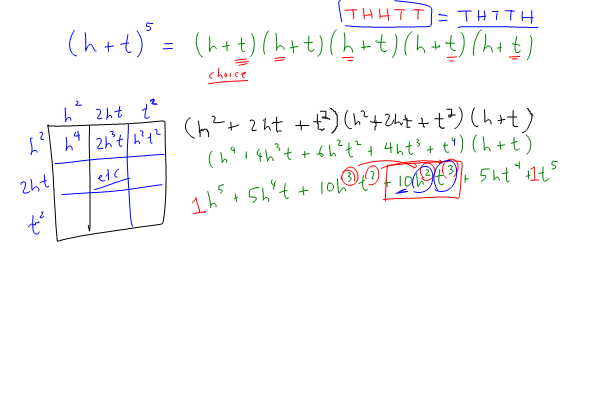 THHTT = THTTH
(h+t)^5 = (h+t)(h+t)(h+t)(h+t)(h+t)
choice
h² 2ht t²
h² h⁴ 2h³t h²t²
2ht etc
t²
(h² + 2ht + t²)(h² + 2ht + t²)(h+t)
(h⁴ + 4h³t + 6h²t² + 4ht³ + t⁴)(h+t)
1h⁵ + 5h⁴t + 10h³t² + 10h²t³ + 5ht⁴ + 1t⁵